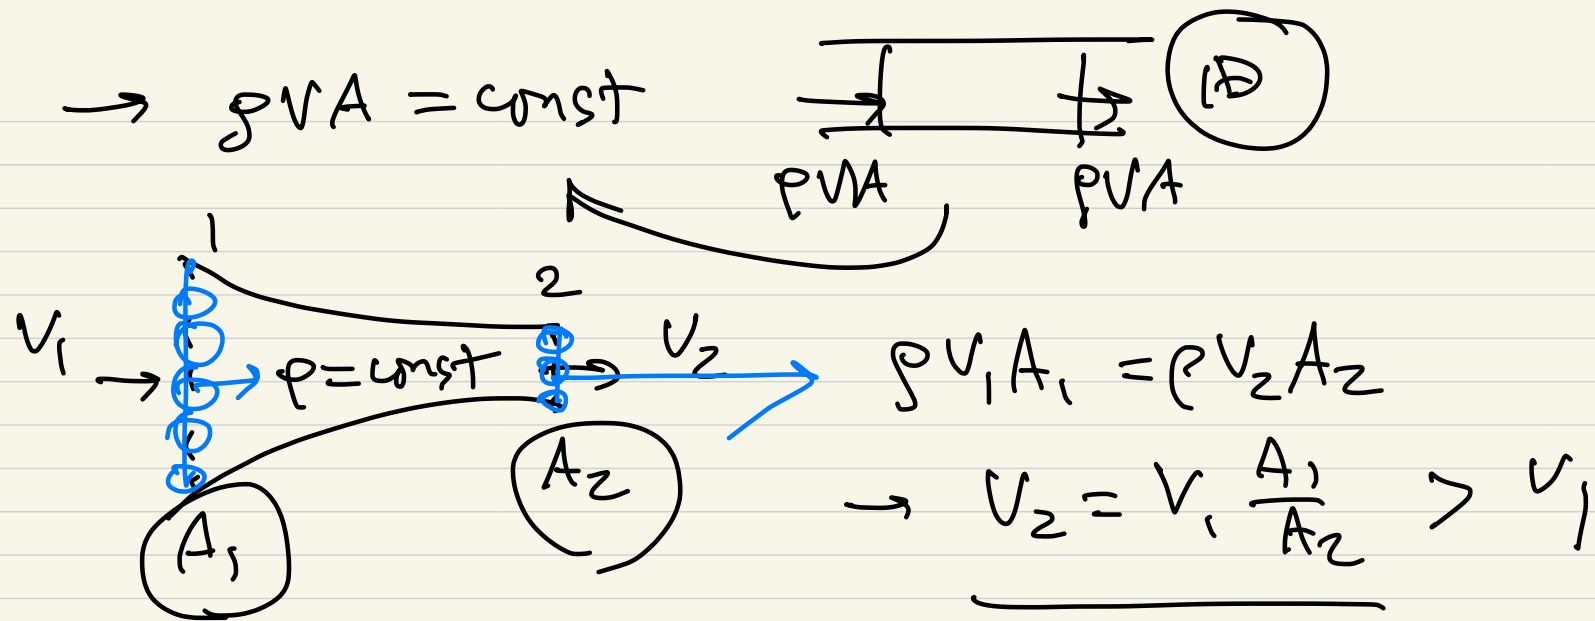 → ρVA = const
1D
ρVA ρVA
1
2
V₁ → ρ = const → V₂
ρV₁A₁ = ρV₂A₂
A₁
A₂
→ V₂ = V₁ A₁/A₂ > V₁